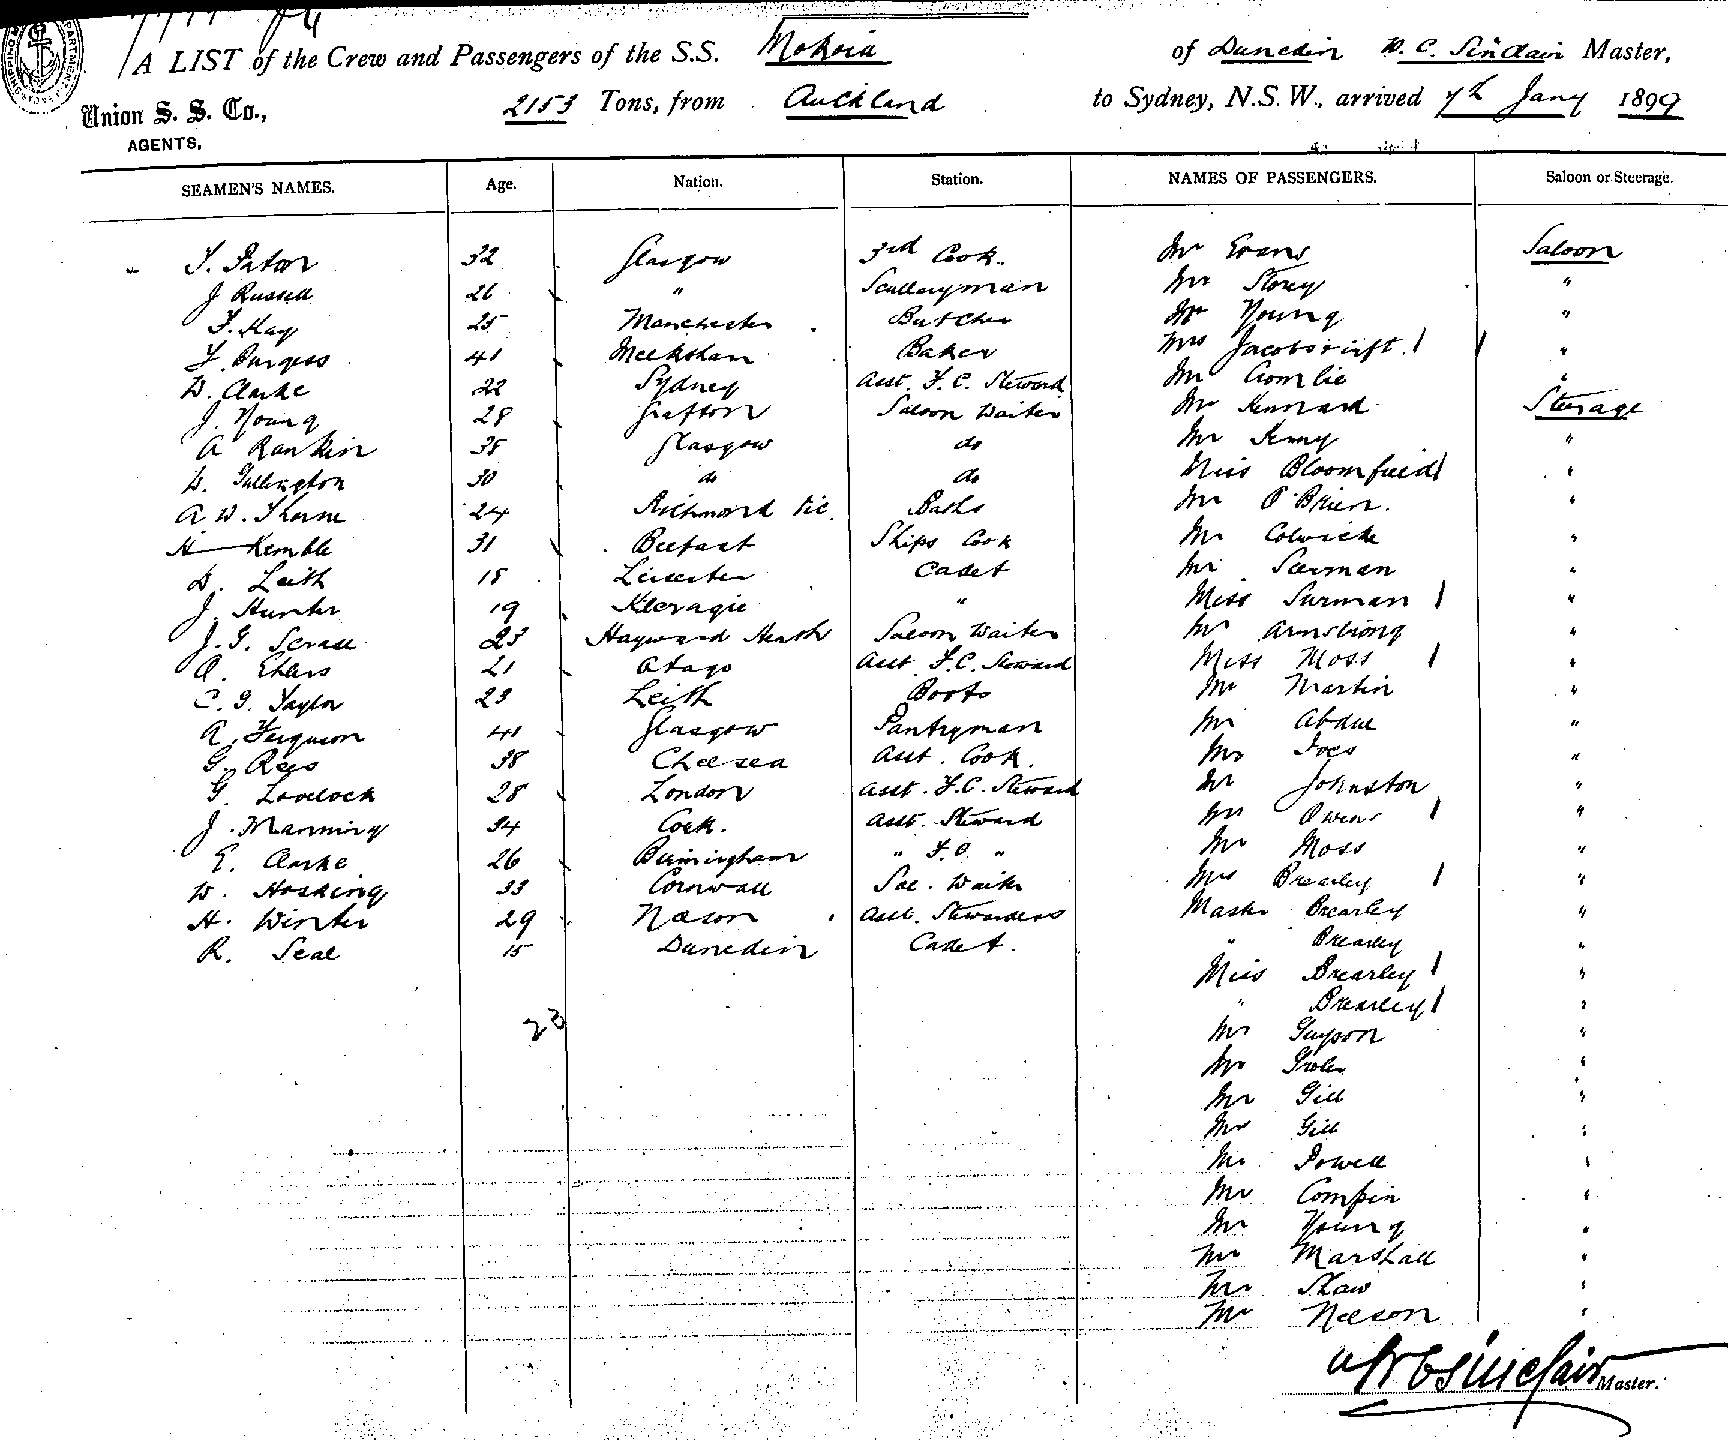 A LIST of the Crew and Passengers of the S.S. Mokoia of Dunedin W. C. Sinclair Master,
Union S. S. Co., 2153 Tons, from Auckland to Sydney, N.S.W., arrived 7th Jany 1899
AGENTS.
SEAMEN'S NAMES. Age. Nation. Station. NAMES OF PASSENGERS. Saloon or Steerage.
32 Glasgow 3rd Cook. Mr Evans Saloon
J Russell 26 " Sculleryman Mr Storey "
F. Kay 25 Manchester Butcher Mr Young "
F. Burgess 41 Baker Mrs "
D. Clarke 22 Sydney Asst. F.C. Steward Mr "
J. Young 28 Grafton Saloon Waiter Mr Kennard Steerage
A Rankin 38 Glasgow do Mr Kenny "
D. 30 do do Miss Bloomfield "
A W. Thorne 24 Richmond Vic. Baths Mr O'Brien. "
H Kemble 31 Belfast Ships Cook Mr Colwick "
D. Leith 18 Leicester Cadet Mr "
J. Hunter 19 " Miss Surman "
J. G. Scrase 23 Hayward Heath Saloon Waiter Mr Armstrong "
A. Ehlers 21 Otago Asst F.C. Steward Miss Moss "
C. J. Taylor 23 Leith Boots Mr Martin "
A. Ferguson 41 Glasgow Pantryman Mr "
G. Rees 38 Chelsea Asst. Cook. "
G. Lovelock 28 London Asst. F.C. Steward Mr Johnston "
J. Manning 34 Cork. Asst. Steward Owens "
E. Clarke 26 Birmingham " F.C. " Mr Moss "
W. Hosking 33 Cornwall Sal. Waiter Mrs Brearley "
H. Winter 29 Nelson Asst. Stewardess Master Brearley "
R. Seal 15 Dunedin Cadet. " Brearley "
Miss Brearley "
" Brearley "
23 Mr "
Mr "
Mr Gill "
Mr Gill "
Mr Powell "
Mr "
Mr Young "
Mr Marshall "
Mr Shaw "
Mr Nelson "
W C Sinclair Master.